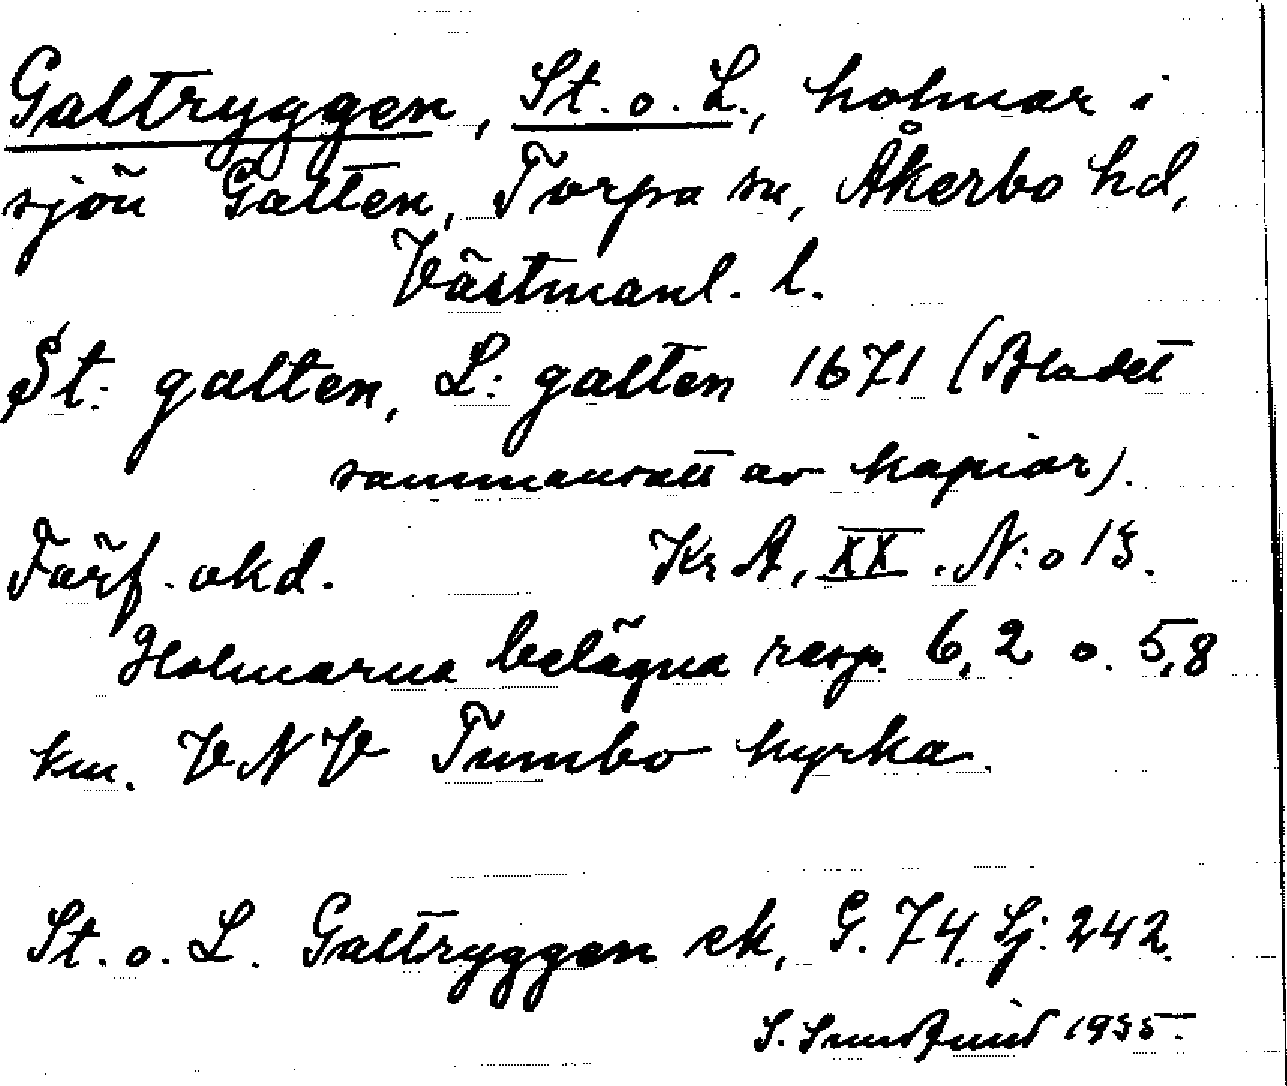 Galtryggen, St. o. L., holmar i
sjön Galten, Torpa sn, Åkerbo hd,
Västmanl. l.
St: galten, L: galten 1671 (Bladet
sammansatt av kopior).
Förf. okd. Kr A, XX. N:o 15.
Holmarna belägna resp. 6,2 o. 5,8
km. VNV Tumbo kyrka.
St. o. L. Galtryggen ek, G. 74, Sj: 242.
S. 1935.